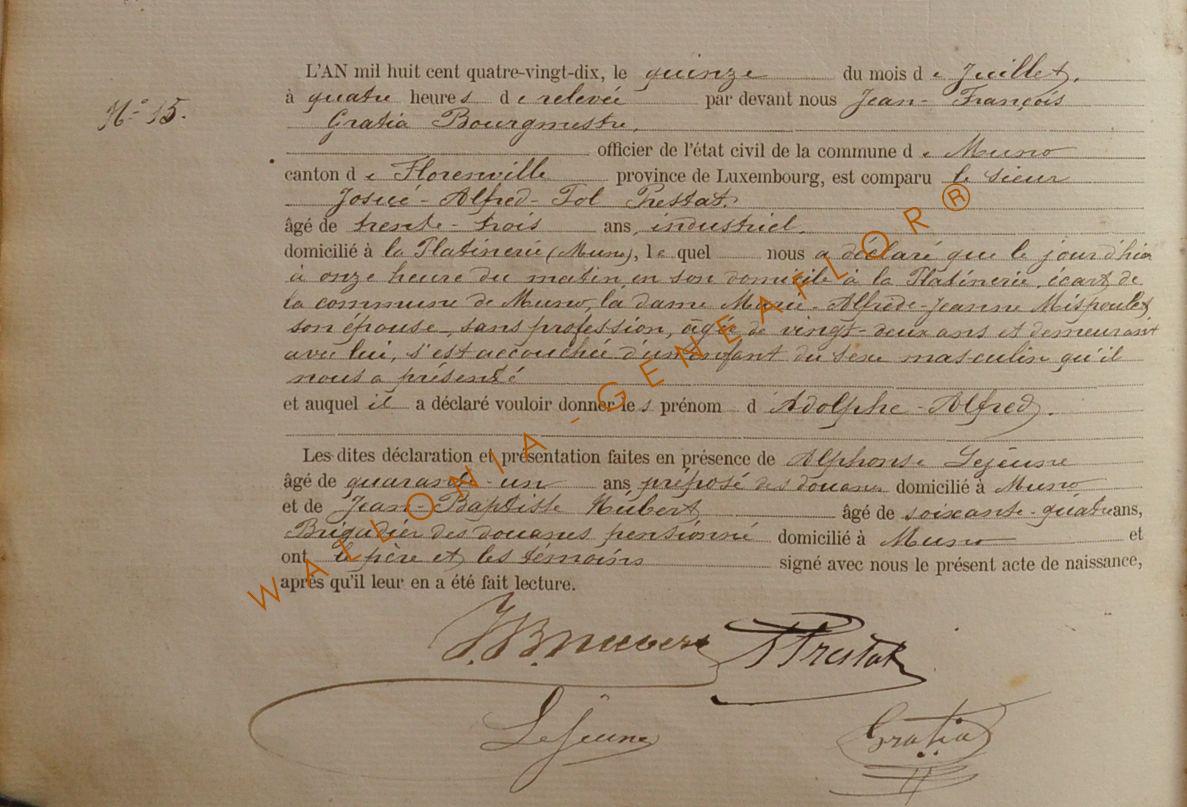 N° 15.
L'AN mil huit cent quatre-vingt-dix, le quinze du mois de Juillet,
à quatre heures de relevée par devant nous Jean-François
Gratia Bourgmestre,
officier de l'état civil de la commune de Muno
canton de Florenville province de Luxembourg, est comparu le sieur
Josué-Alfred-Tol Prestat,
âgé de trente-trois ans, industriel,
domicilié à la Platinerie (Muno), lequel nous a déclaré que le jour d'hier
à onze heure du matin, en son domicile à la Platinerie, écart de
la commune de Muno, la dame Marie-Alfrede-Jeanne Mispoulet,
son épouse, sans profession, âgée de vingt-deux ans et demeurant
avec lui, s'est accouchée d'un enfant du sexe masculin qu'il
nous a présenté
et auquel il a déclaré vouloir donner les prénom d Adolphe-Alfred.
Les dites déclaration et présentation faites en présence de Alphonse Lejeune
âgé de quarante-un ans préposé des douanes domicilié à Muno
et de Jean-Baptiste Hubert âgé de soixante-quatre ans,
Brigadier des douanes pensionné domicilié à Muno et
ont le père et les témoins signé avec nous le présent acte de naissance,
après qu'il leur en a été fait lecture.
J.B. Hubert Prestat
Lejeune Gratia
WALLONIA-GENEAFLOR®